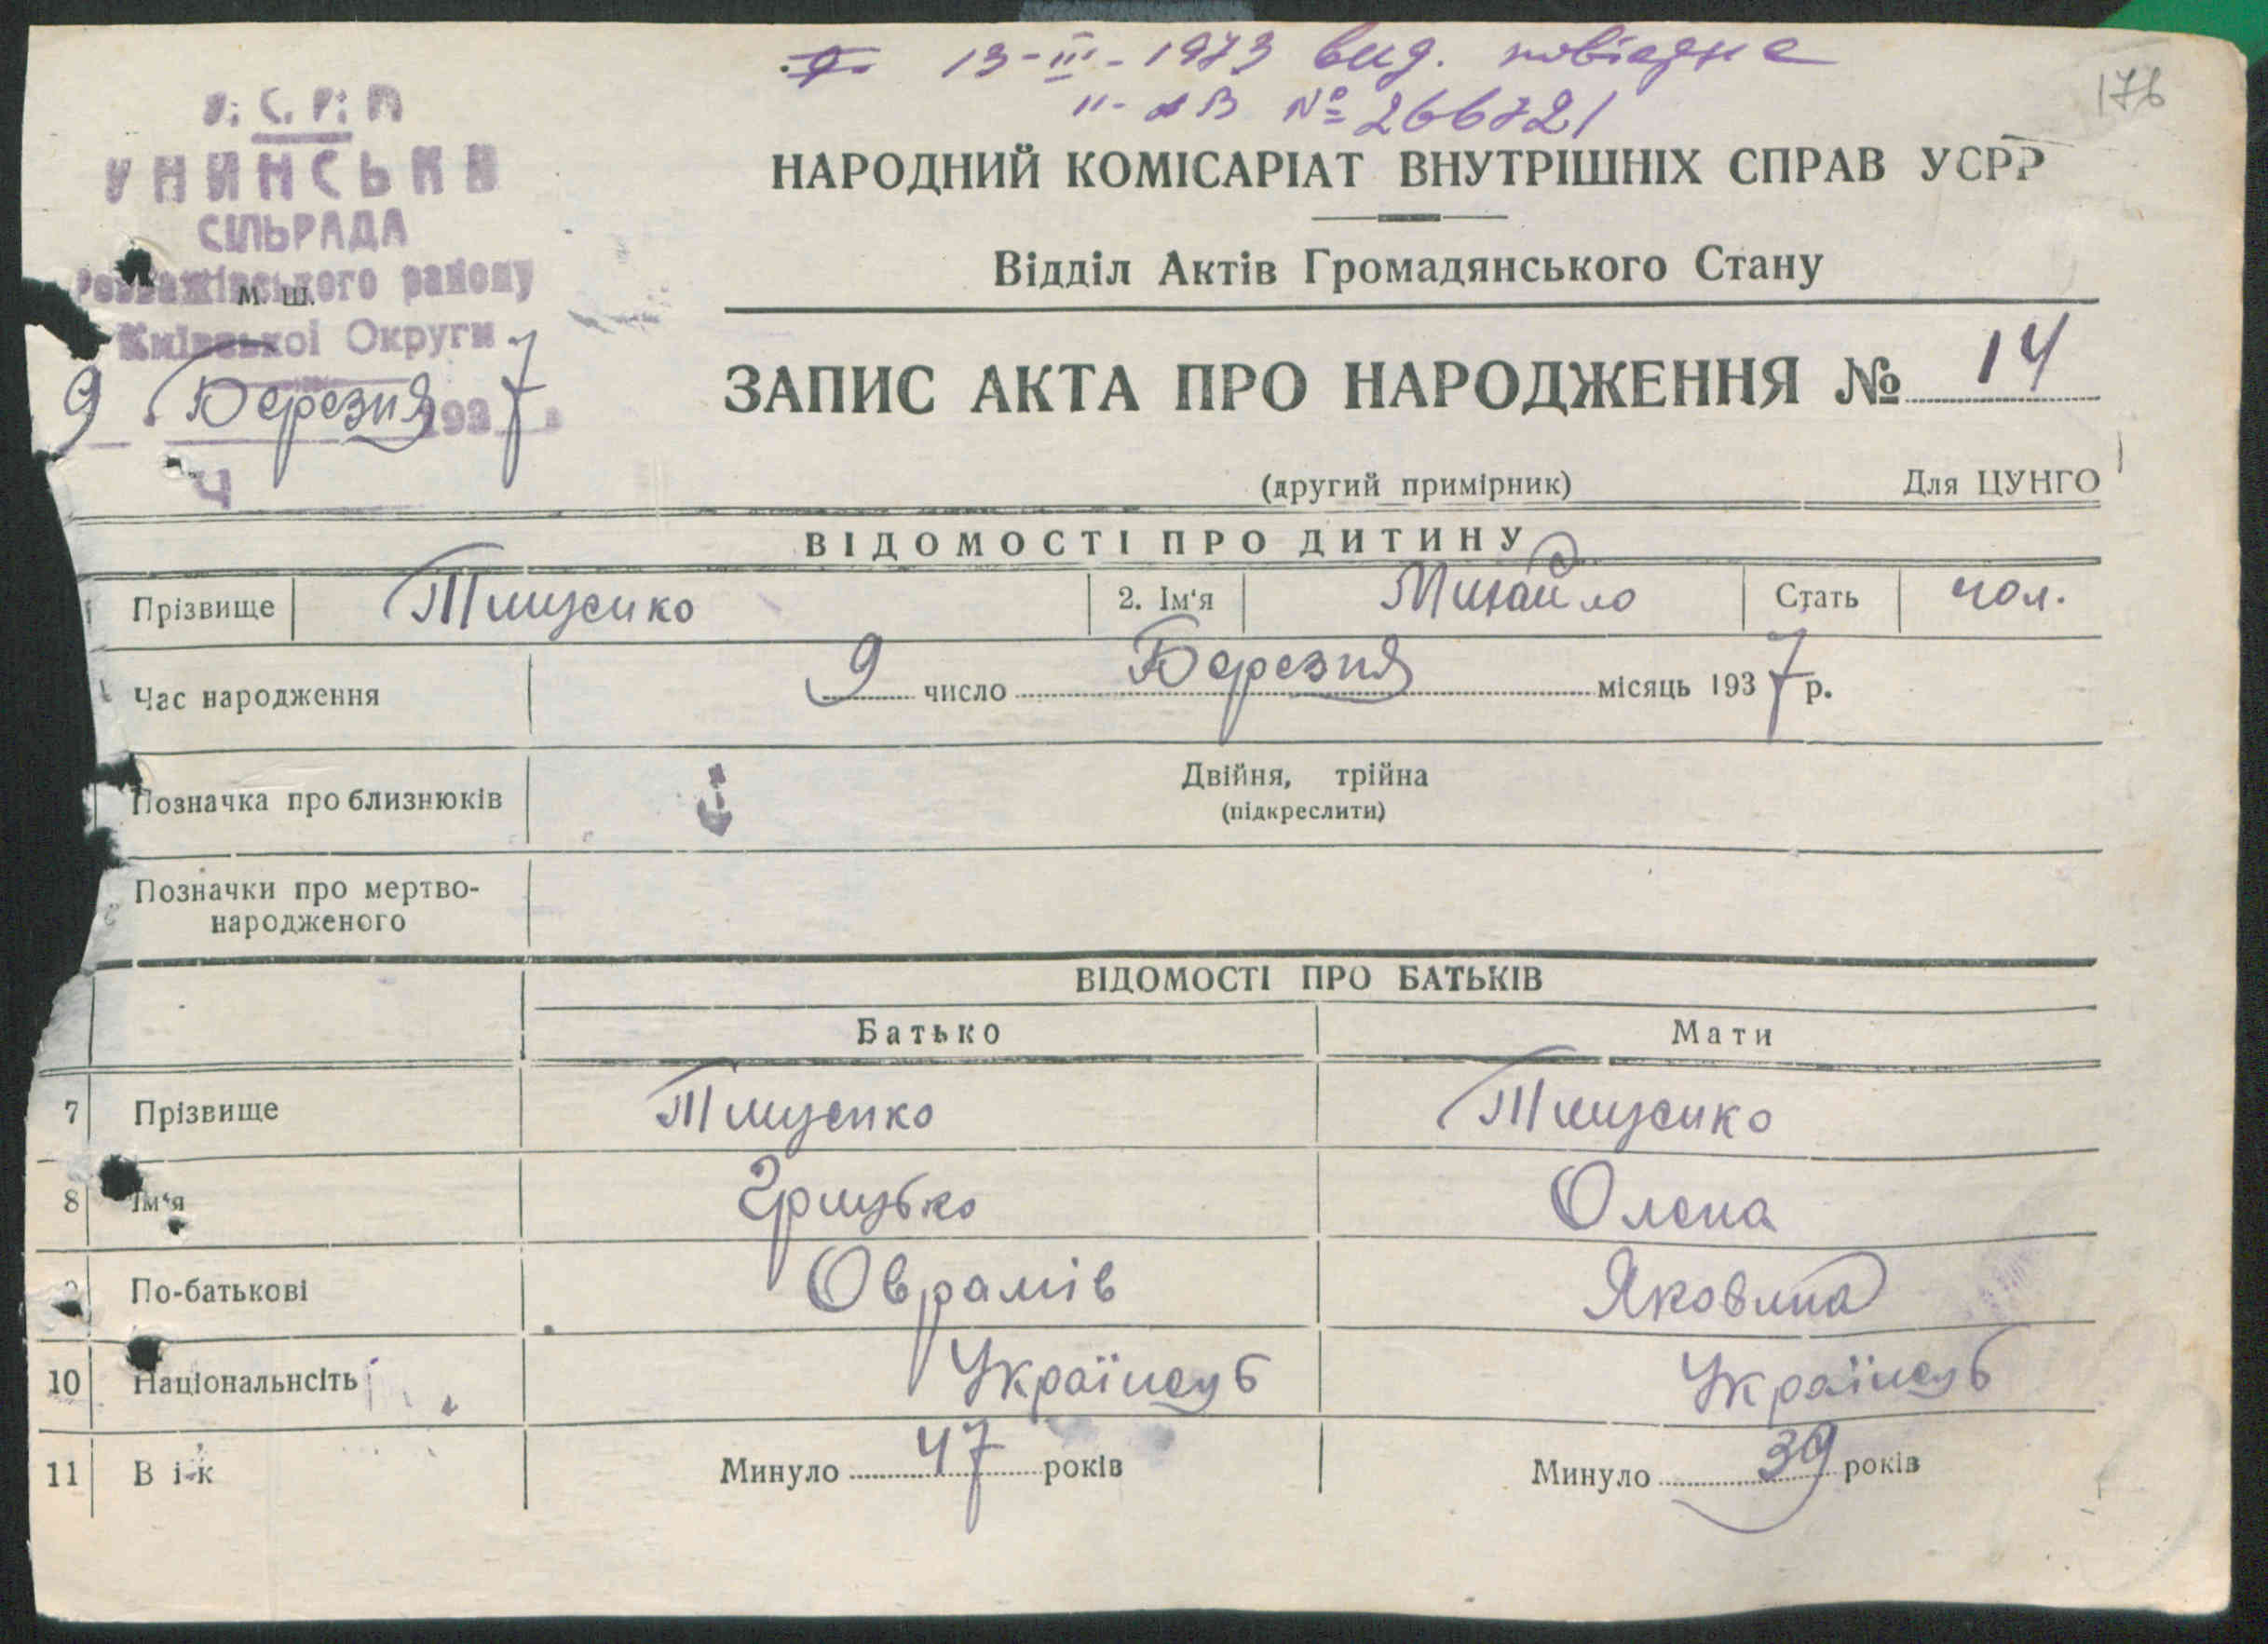 13-III-1973 вид. повідне
II- № 266721
176
У. С. Р. Р
УНИНСЬКА
СІЛЬРАДА
Розважівського району
м. ш.
Київської Округи
9 Березня 1937
Ч
НАРОДНИЙ КОМІСАРІАТ ВНУТРІШНІХ СПРАВ УСРР
Відділ Актів Громадянського Стану
ЗАПИС АКТА ПРО НАРОДЖЕННЯ № 14
(другий примірник) Для ЦУНГО
ВІДОМОСТІ ПРО ДИТИНУ
Прізвище Тищенко 2. Ім'я Михайло Стать чол.
Час народження 9 число Березня місяць 1937 р.
Позначка про близнюків Двійня, трійна
(підкреслити)
Позначки про мертво-
народженого
ВІДОМОСТІ ПРО БАТЬКІВ
Батько Мати
7 Прізвище Тищенко Тищенко
8 Ім'я Грицько Олена
9 По-батькові Оврамів Яковлна
10 Національнсіть Українець Українець
11 Вік Минуло 47 років Минуло 39 років